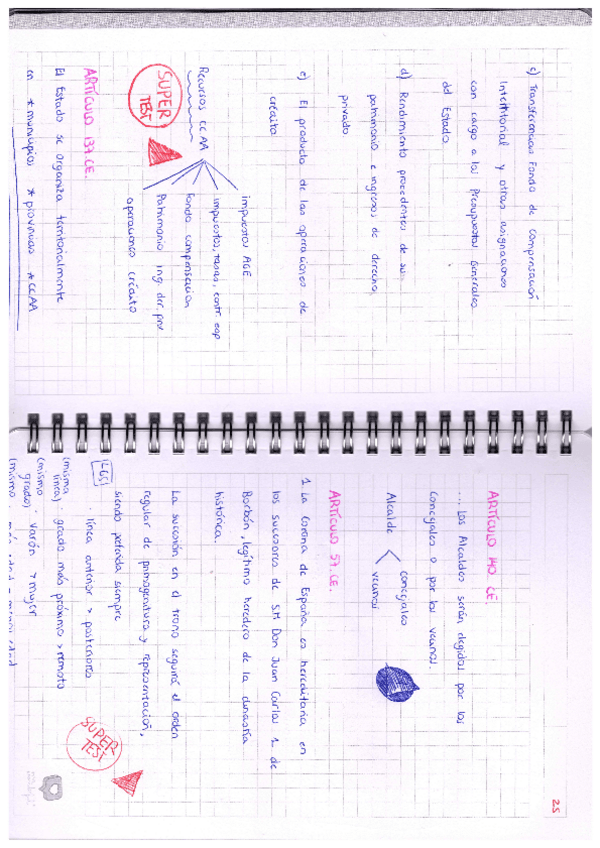 c) Transferencias Fondo de Compensación
Interterritorial y otras asignaciones
con cargo a los Presupuestos Generales
del Estado.
d) Rendimiento procedentes de su
patrimonio e ingresos de derecho
privado
e) El producto de las operaciones de
crédito.
Recursos CCAA
impuestos AGE
impuestos, tasas, contr. esp
Fondo compensación
Patrimonio ing. der. priv
operaciones crédito
SUPER
TEST
ARTÍCULO 137 CE.
El Estado se organiza territorialmente
en * municipios * provincias * CCAA
25
ARTÍCULO 140 CE.
... Los Alcaldes serán elegidos por los
Concejales o por los vecinos.
Alcalde
concejales
vecinos
ARTÍCULO 57 CE.
1 La Corona de España es hereditaria en
los sucesores de S.M Don Juan Carlos 1. de
Borbón, legítimo heredero de la dinastía
histórica.
La sucesión en el trono seguirá el orden
regular de primogenitura y representación,
siendo preferida siempre
· línea anterior > posteriores
(misma línea) · grado más próximo > remoto
(mismo grado) · varón > mujer
(mismo
SUPER
TEST